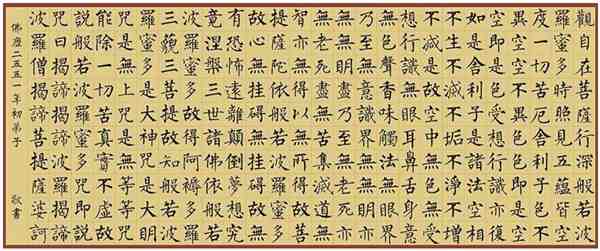 觀自在菩薩行深般若波
羅蜜多時照見五蘊皆空
度一切苦厄舍利子色不
異空空不異色色即是空
空即是色受想行識亦復
如是舍利子是諸法空相
不生不滅不垢不淨不增
不減是故空中無色無受
想行識無眼耳鼻舌身意
無色聲香味觸法無眼界
乃至無意識界無無明亦
無無明盡乃至無老死亦
無老死盡無苦集滅道無
智亦無得以無所得故菩
提薩埵依般若波羅蜜多
故心無挂礙無挂礙故無
有恐怖遠離顛倒夢想究
竟涅槃三世諸佛依般若
波羅蜜多故得阿耨多羅
三藐三菩提故知般若波
羅蜜多是大神咒是大明
咒是無上咒是無等等咒
能除一切苦真實不虛故
說般若波羅蜜多咒即說
咒曰揭諦揭諦波羅揭諦
波羅僧揭諦菩提薩婆訶
佛曆二五五一年初弟子 敬書